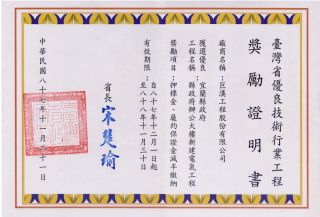 臺灣省優良技術行業工程
獎勵證明書
廠商名稱：巨漢工程股份有限公司
獲選優良
工程名稱：宜蘭縣政府
縣政府辦公大樓新建電氣工程
獎勵項目：押標金、履約保證金減半繳納
有效期限：自八十七年十二月一日起
至八十八年十一月三十日
省長 宋楚瑜
中華民國八十七年十一月三十一日